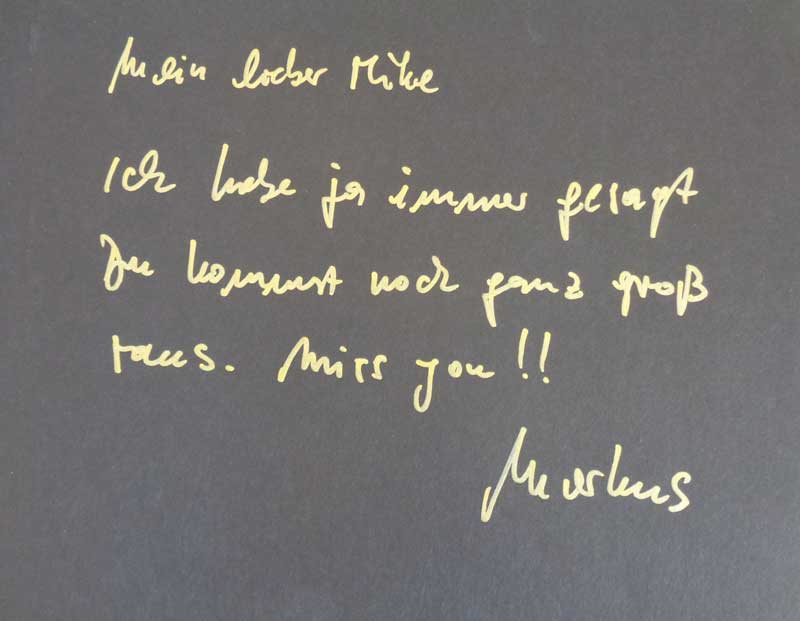 Mein lieber Mike
Ich habe ja immer gesagt
Du kommst noch ganz groß
raus. Miss you!!
Markus